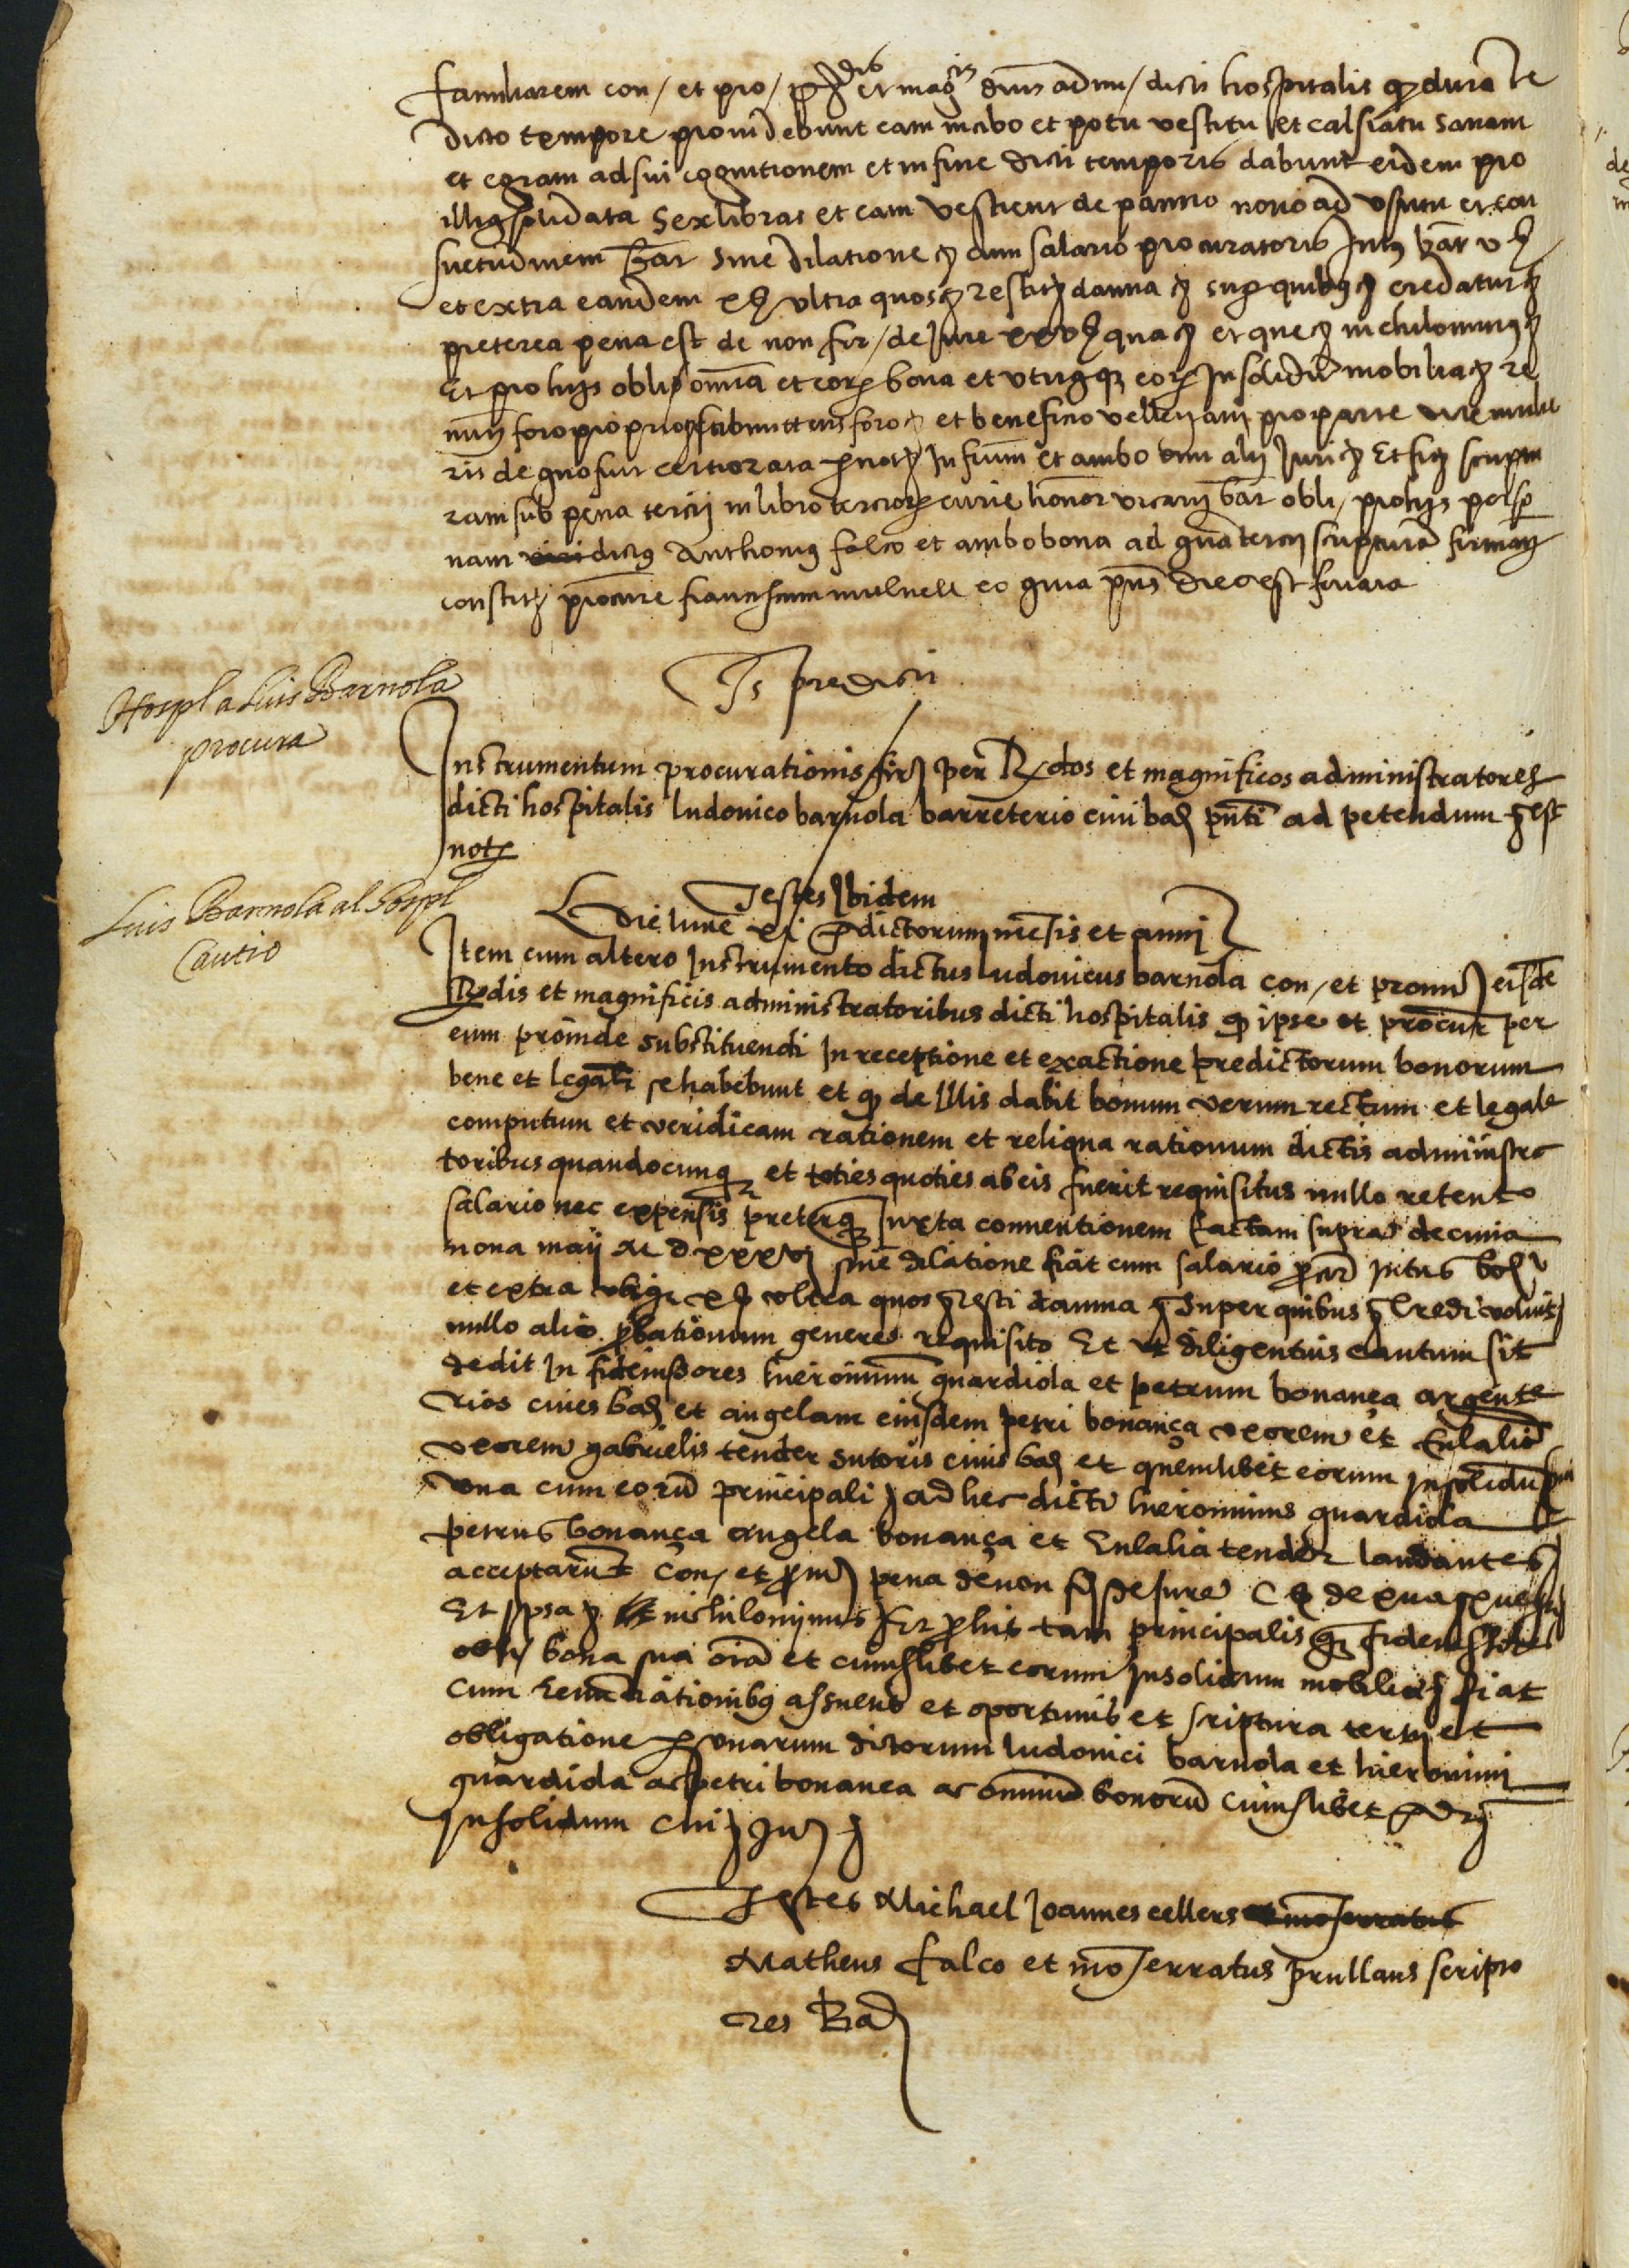 familiarem con / et pro / Rdis et magcis dnis admi / dicti hospitalis q durate
dicto tempore providebunt eam in cibo et potu vestitu et calsiatu sanam
et egram ad sui cognitionem et in fine dicti temporis dabunt eidem pro
illius solidata sex libras et eam vestient de panno novo ad usum et con
suetudinem bar sine dilatione cum salario procuratoris intus bar v s
et extra eandem x s ultra quos restit danna super quibus credatur
preterea pena est de non fir / de jure
Et pro hiis obli omnia et eor bona et utriusque eor insolidum mobilia re
nun foro proprio submittens foro et beneficio velleyani pro parte mulie
ris de quo fuit certiorata per not infrum et ambo omi alii juri Et fiat scriptu
ram sub pena tercii in libro tercior curie honor vicarii bar obli / pro hiis perso
nam dictus Anthonius falco et ambo bona ad qua tercii scriptura firman
constit procure franciscum mulnell eo quia pns Die est feriata
Ts predicti
Hospl a Luis Barnola
procura
Instrumentum procurationis fir per Rdos et magnificos administratores
dicti hospitalis ludovico barnola barreterio civi bar pnti ad petendum est
not
Testes Ibidem
Luis Barnola al Hospl
Cautio
Die lune xi predictorum mensis et anni
Item cum altero Instrumento dictus ludovicus barnola con / et promi eisde
Rdis et magnificis administratoribus dicti hospitalis q ipse et procur per
eum proinde substituendi In receptione et exactione predictorum bonorum
bene et legalr se habebunt et q de Illis dabit bonum verum rectum et legale
computum et veridicam rationem et reliqua rationum dictis administra
toribus quandocunq et toties quoties ab eis fuerit requisitus nullo retento
salario nec expensis preterq Juxta conventionem factam supra decima
nona maij M D xxxvj sine dilatione fiat cum salario procur intus bar v
et extra ubiq x s ultra quos resti damna super quibus credi voluit
nullo alio probationum genere requisito Et ut diligentius cautum sit
dedit In fideiussores hieronimum guardiola et petrum bonança argente
rios cives bar et angelam eiusdem petri bonança uxorem et Eulalia
uxorem gabrielis tender sutoris civis bar et quemlibet eorum insolidum
una cum eoru principali ad hec dicti hieronimus guardiola
petrus bonança angela bonança et Eulalia tender laudantes
acceptarunt con / et promi pena de non fir de jure
Et ipsa nichilominus Et pro hiis tam principalis q fideiussores
obli / bona sua oia et cuiuslibet eorum insolidum mobilia fiat
cum renunciationibus assuetis et oportunis et scriptura tertii et
obligatione personarum dictorum ludovici barnola et hieronimi
guardiola ac petri bonança ac omniu bonoru cuiuslibet
Insolidum
Testes Michael Joannes cellers et monserratus
Matheus falco et monserratus prullans scripto
res Bar